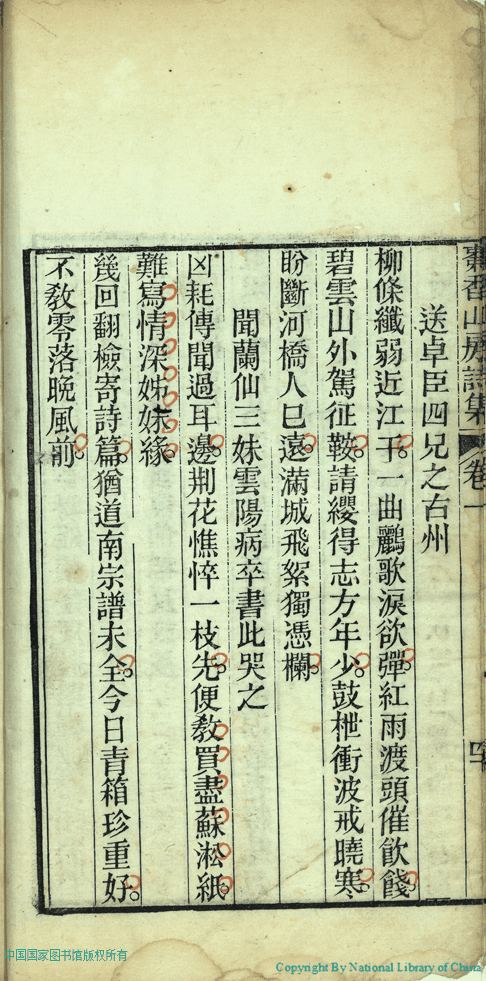 香山房詩集 卷一
送卓臣四兄之古州
柳條纖弱近江干。一曲鸝歌淚欲彈。紅雨渡頭催飲餞。
碧雲山外駕征鞍。請纓得志方年少。鼓枻衝波戒曉寒。
盼斷河橋人已遠。滿城飛絮獨憑欄。
聞蘭仙三妹雲陽病卒書此哭之
凶耗傳聞過耳邊。荆花憔悴一枝先。便教買盡蘇淞紙。
難寫情深姊妹緣。
幾回翻檢寄詩篇。猶道南宗譜未全。今日青箱珍重好。
不教零落晚風前。
中国国家图书馆版权所有
Copyright By National Library of China